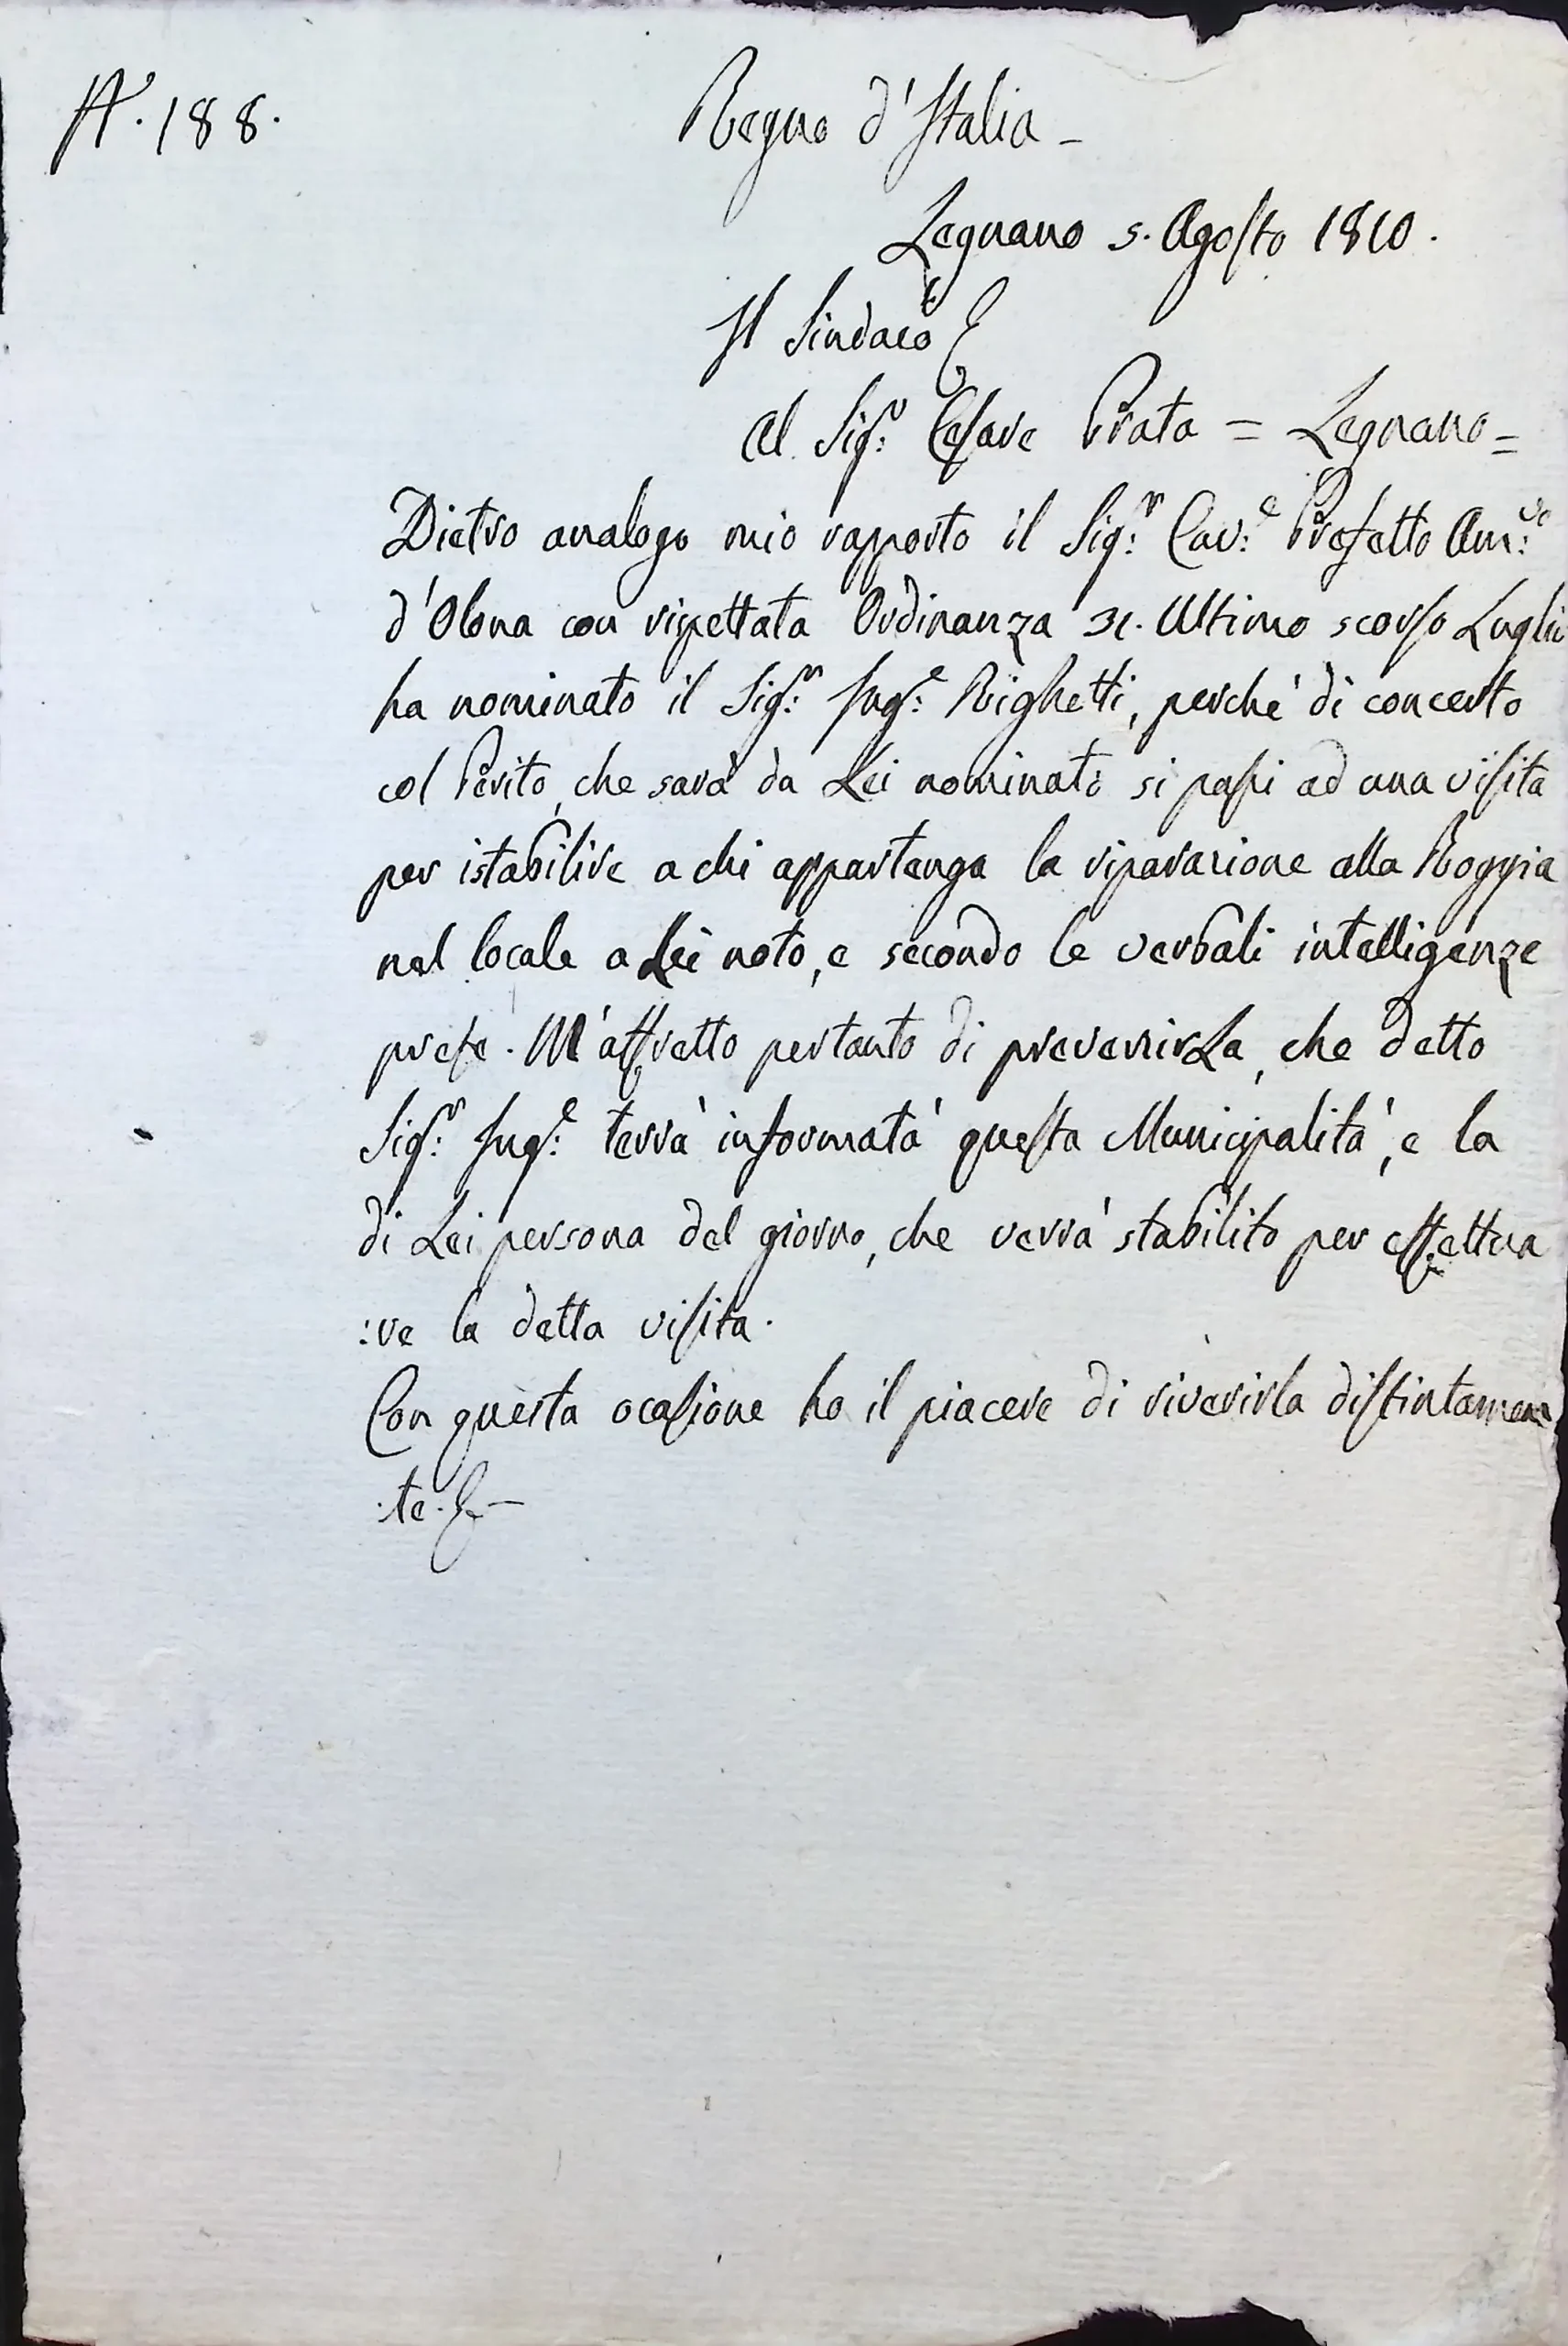 N.° 188.
Regno d'Italia -
Legnano 5. Agosto 1810.
Il Sindaco
Al Sig.r Cesare Prata = Legnano =
Dietro analogo mio rapporto il Sig.r Cav.e Prefetto Am.re
d'Olona con rispettata Ordinanza 31. Ultimo scorso Luglio
ha nominato il Sig.r Ing.e Righetti, perchè di concerto
col Perito, che sarà da Lei nominato si passi ad una visita
per istabilire a chi appartenga la riparazione alla Roggia
nel locale a Lei noto, e secondo le verbali intelligenze
prese. M'affretto pertanto di prevenirLa, che detto
Sig.r Ing.e terrà informata questa Municipalità, e la
di Lei persona del giorno, che verrà stabilito per effettua
:re la detta visita.
Con questa ocasione ho il piacere di riverirla distintamen
:te.